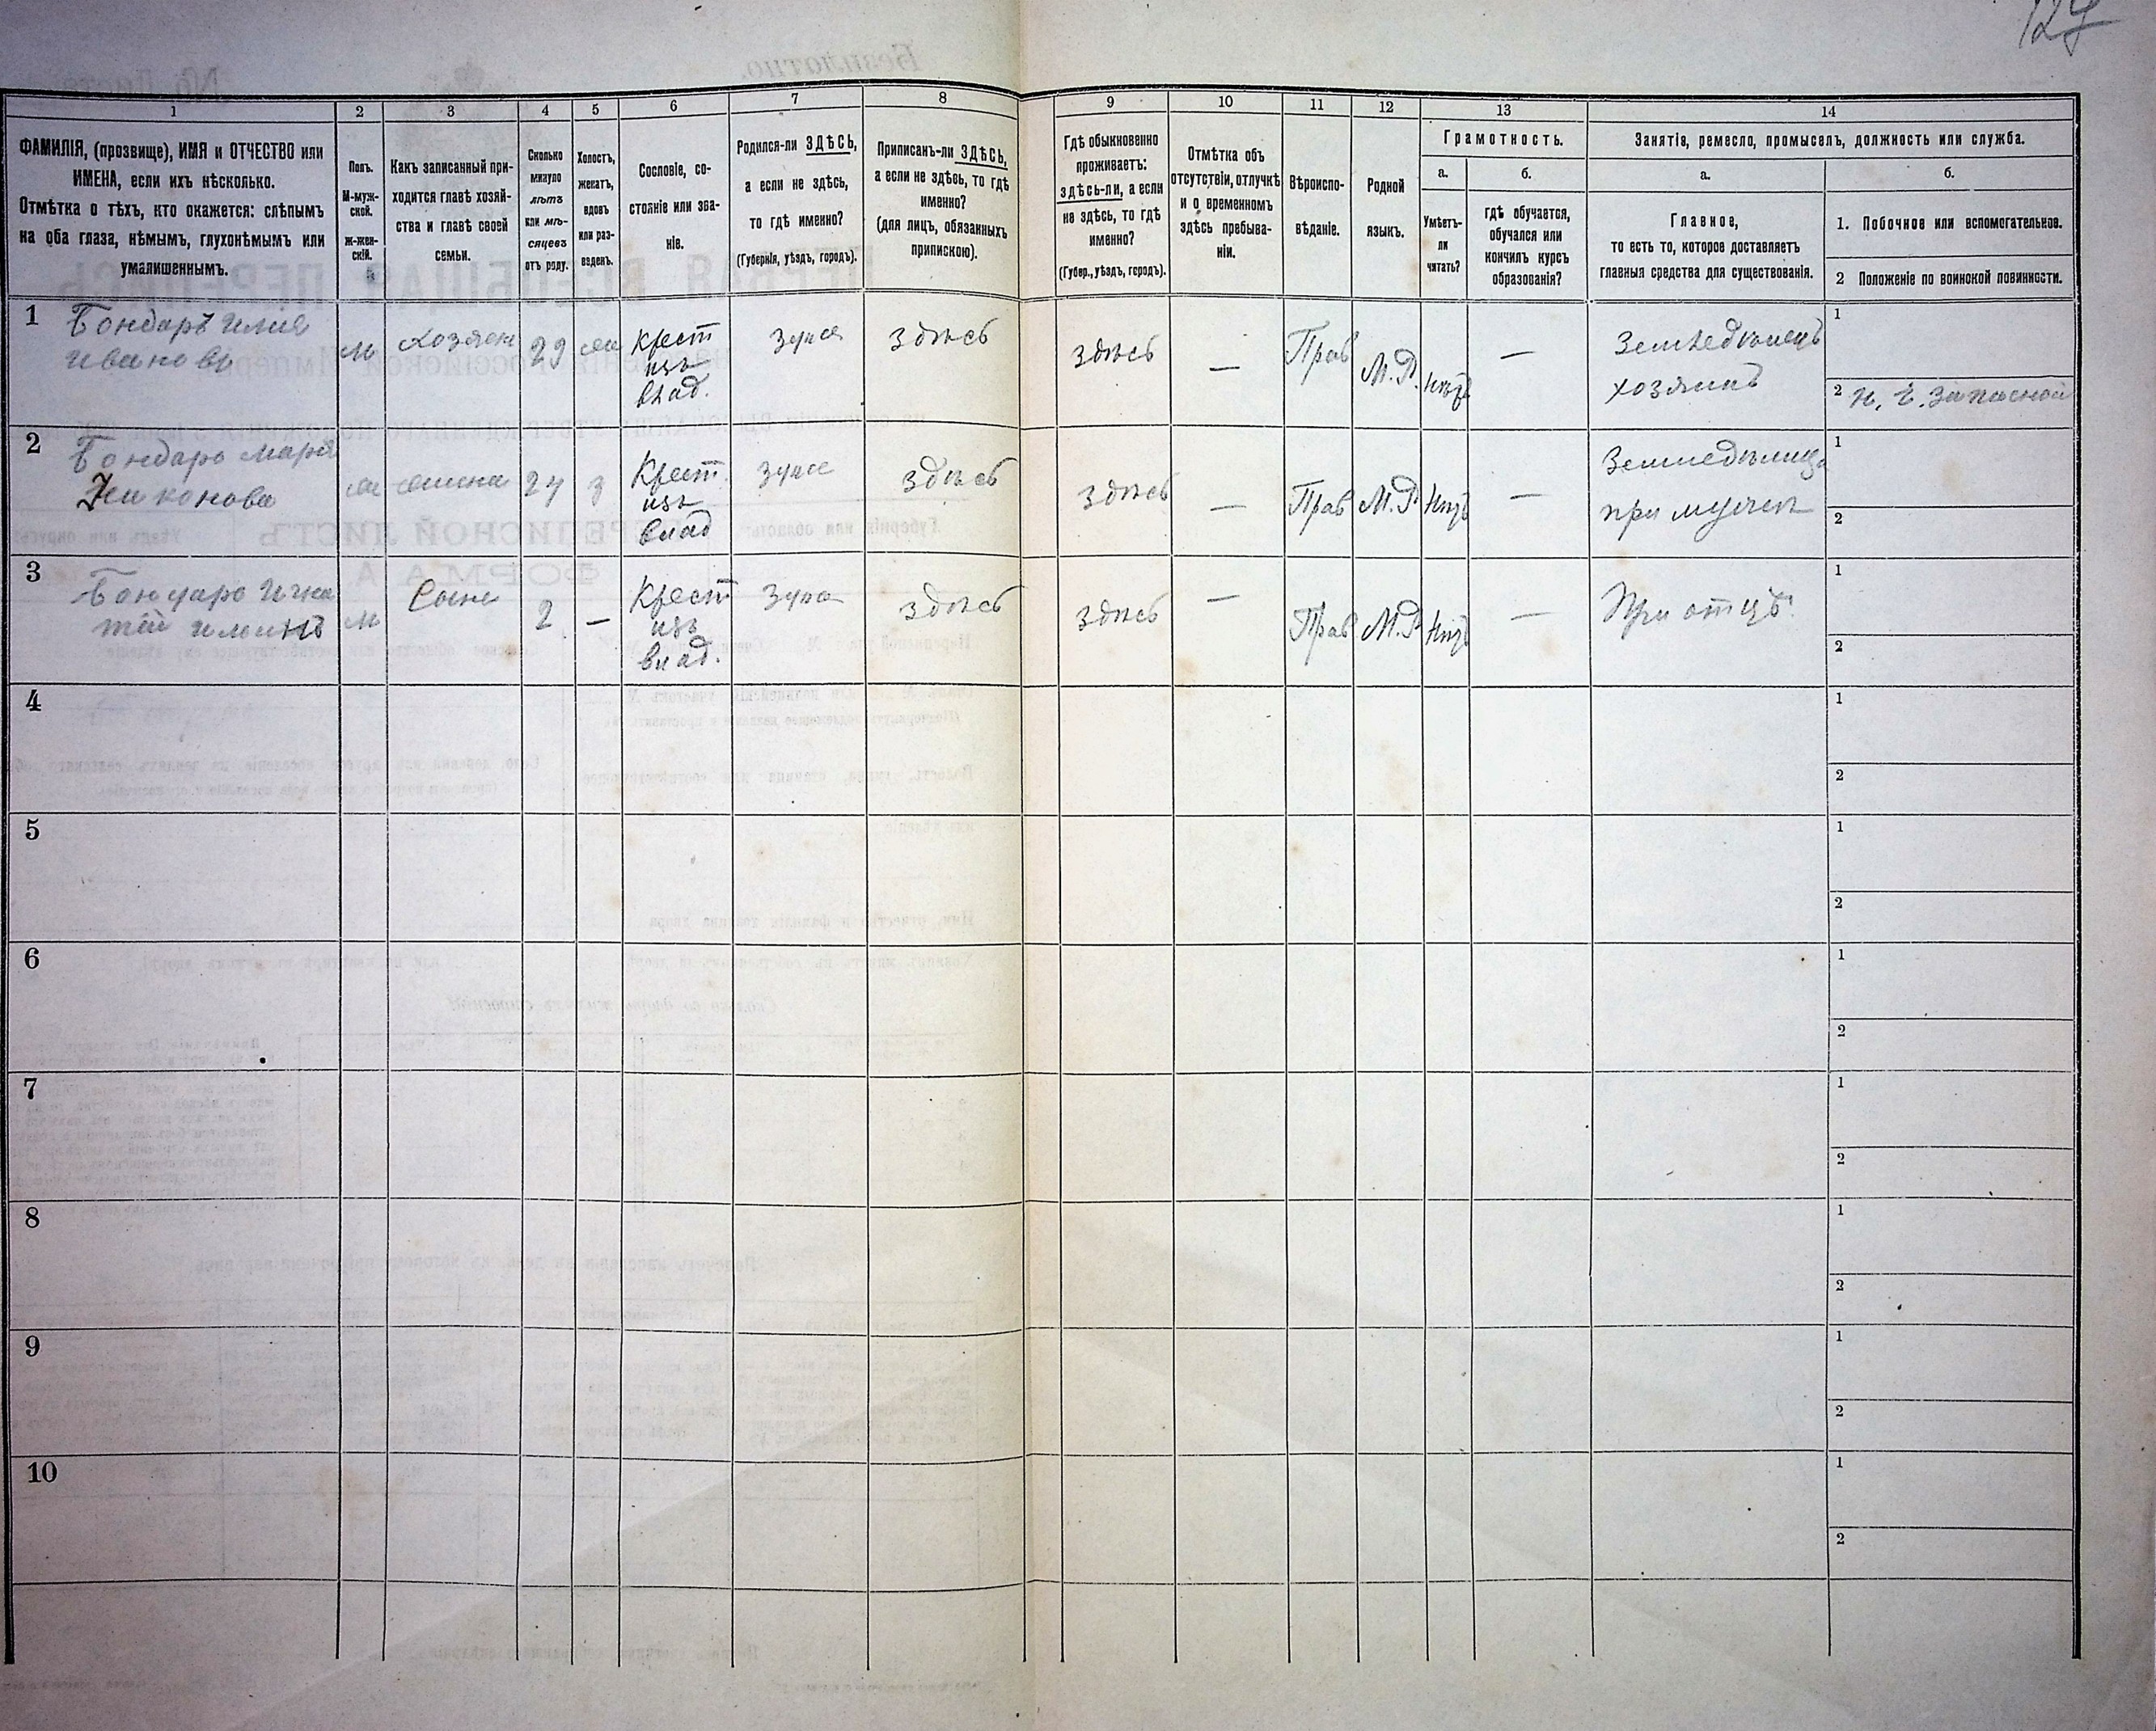 127
1
2
3
4
5
6
7
8
9
10
11
12
13
14
ФАМИЛІЯ, (прозвище), ИМЯ и ОТЧЕСТВО или
ИМЕНА, если ихъ нѣсколько.
Отмѣтка о тѣхъ, кто окажется: слѣпымъ
на оба глаза, нѣмымъ, глухонѣмымъ или
умалишеннымъ.
Полъ.
М-муж-
ской.
ж-жен-
скій.
Какъ записанный при-
ходится главѣ хозяй-
ства и главѣ своей
семьи.
Сколько
минуло
лѣтъ
или мѣ-
сяцевъ
отъ роду.
Холостъ,
женатъ,
вдовъ
или раз-
веденъ.
Сословіе, со-
стояніе или зва-
ніе.
Родился-ли ЗДѢСЬ,
а если не здѣсь,
то гдѣ именно?
(Губернія, уѣздъ, городъ).
Приписанъ-ли ЗДѢСЬ,
а если не здѣсь, то гдѣ
именно?
(для лицъ, обязанныхъ
припискою).
Гдѣ обыкновенно
проживаетъ:
здѣсь-ли, а если
не здѣсь, то гдѣ
именно?
(Губер., уѣздъ, городъ).
Отмѣтка объ
отсутствіи, отлучкѣ
и о временномъ
здѣсь пребыва-
ніи.
Вѣроиспо-
вѣданіе.
Родной
языкъ.
Грамотность.
а.
Умѣетъ-
ли
читать?
б.
гдѣ обучается,
обучался или
кончилъ курсъ
образованія?
Занятія, ремесло, промыселъ, должность или служба.
а.
Главное,
то есть то, которое доставляетъ
главныя средства для существованія.
б.
1. Побочное или вспомогательное.
2 Положеніе по воинской повинности.
1
Бондарь Илія
Ивановъ
м
хозяин
29
Крест
изъ
влад.
здѣсь
здѣсь
—
Прав
М.Р.
—
Земледѣлецъ
хозяинъ
1
2
2
Бондарь Марія
Никонова
24
з
Крест.
изъ
влад
здѣсь
здѣсь
—
Прав
М.Р.
—
при мужѣ
1
2
3
Бондарь Игна
тій Ильинъ
м
Сынъ
2
—
Крест
изъ
влад.
здѣсь
здѣсь
—
Прав
М.Р.
—
При отцѣ
1
2
4
1
2
5
1
2
6
1
2
7
1
2
8
1
2
9
1
2
10
1
2